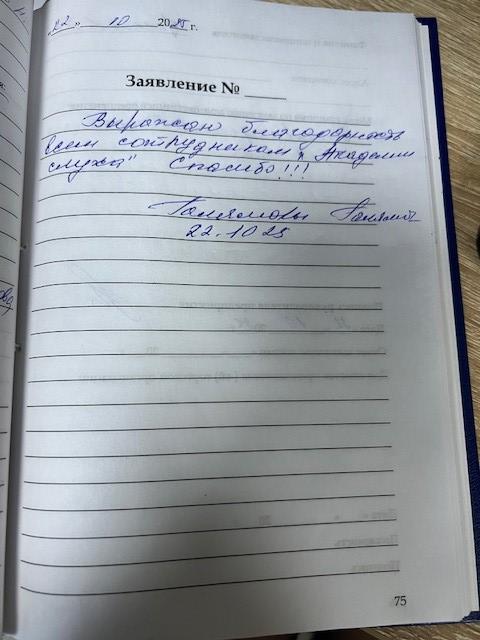 „22" 10 2025 г.
Заявление №
Выражаю благодарность
всем сотрудникам „Академии
слуха" Спасибо!!!
22.10 25
75